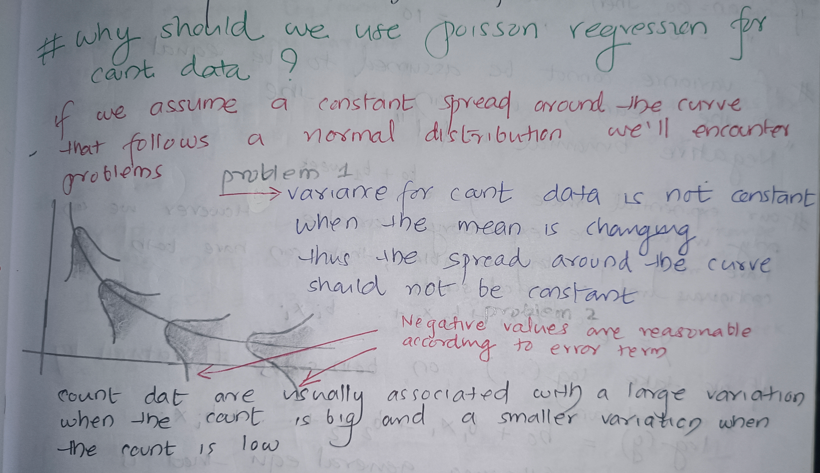 # why should we use poisson regression for
count data ?
if we assume a constant spread around the curve
that follows a normal distribution we'll encounter
problems
problem 1
variance for count data is not constant
when the mean is changing
thus the spread around the curve
should not be constant
problem 2
Negative values are reasonable
according to error term
count dat are usually associated with a large variation
when the count is big and a smaller variation when
the count is low